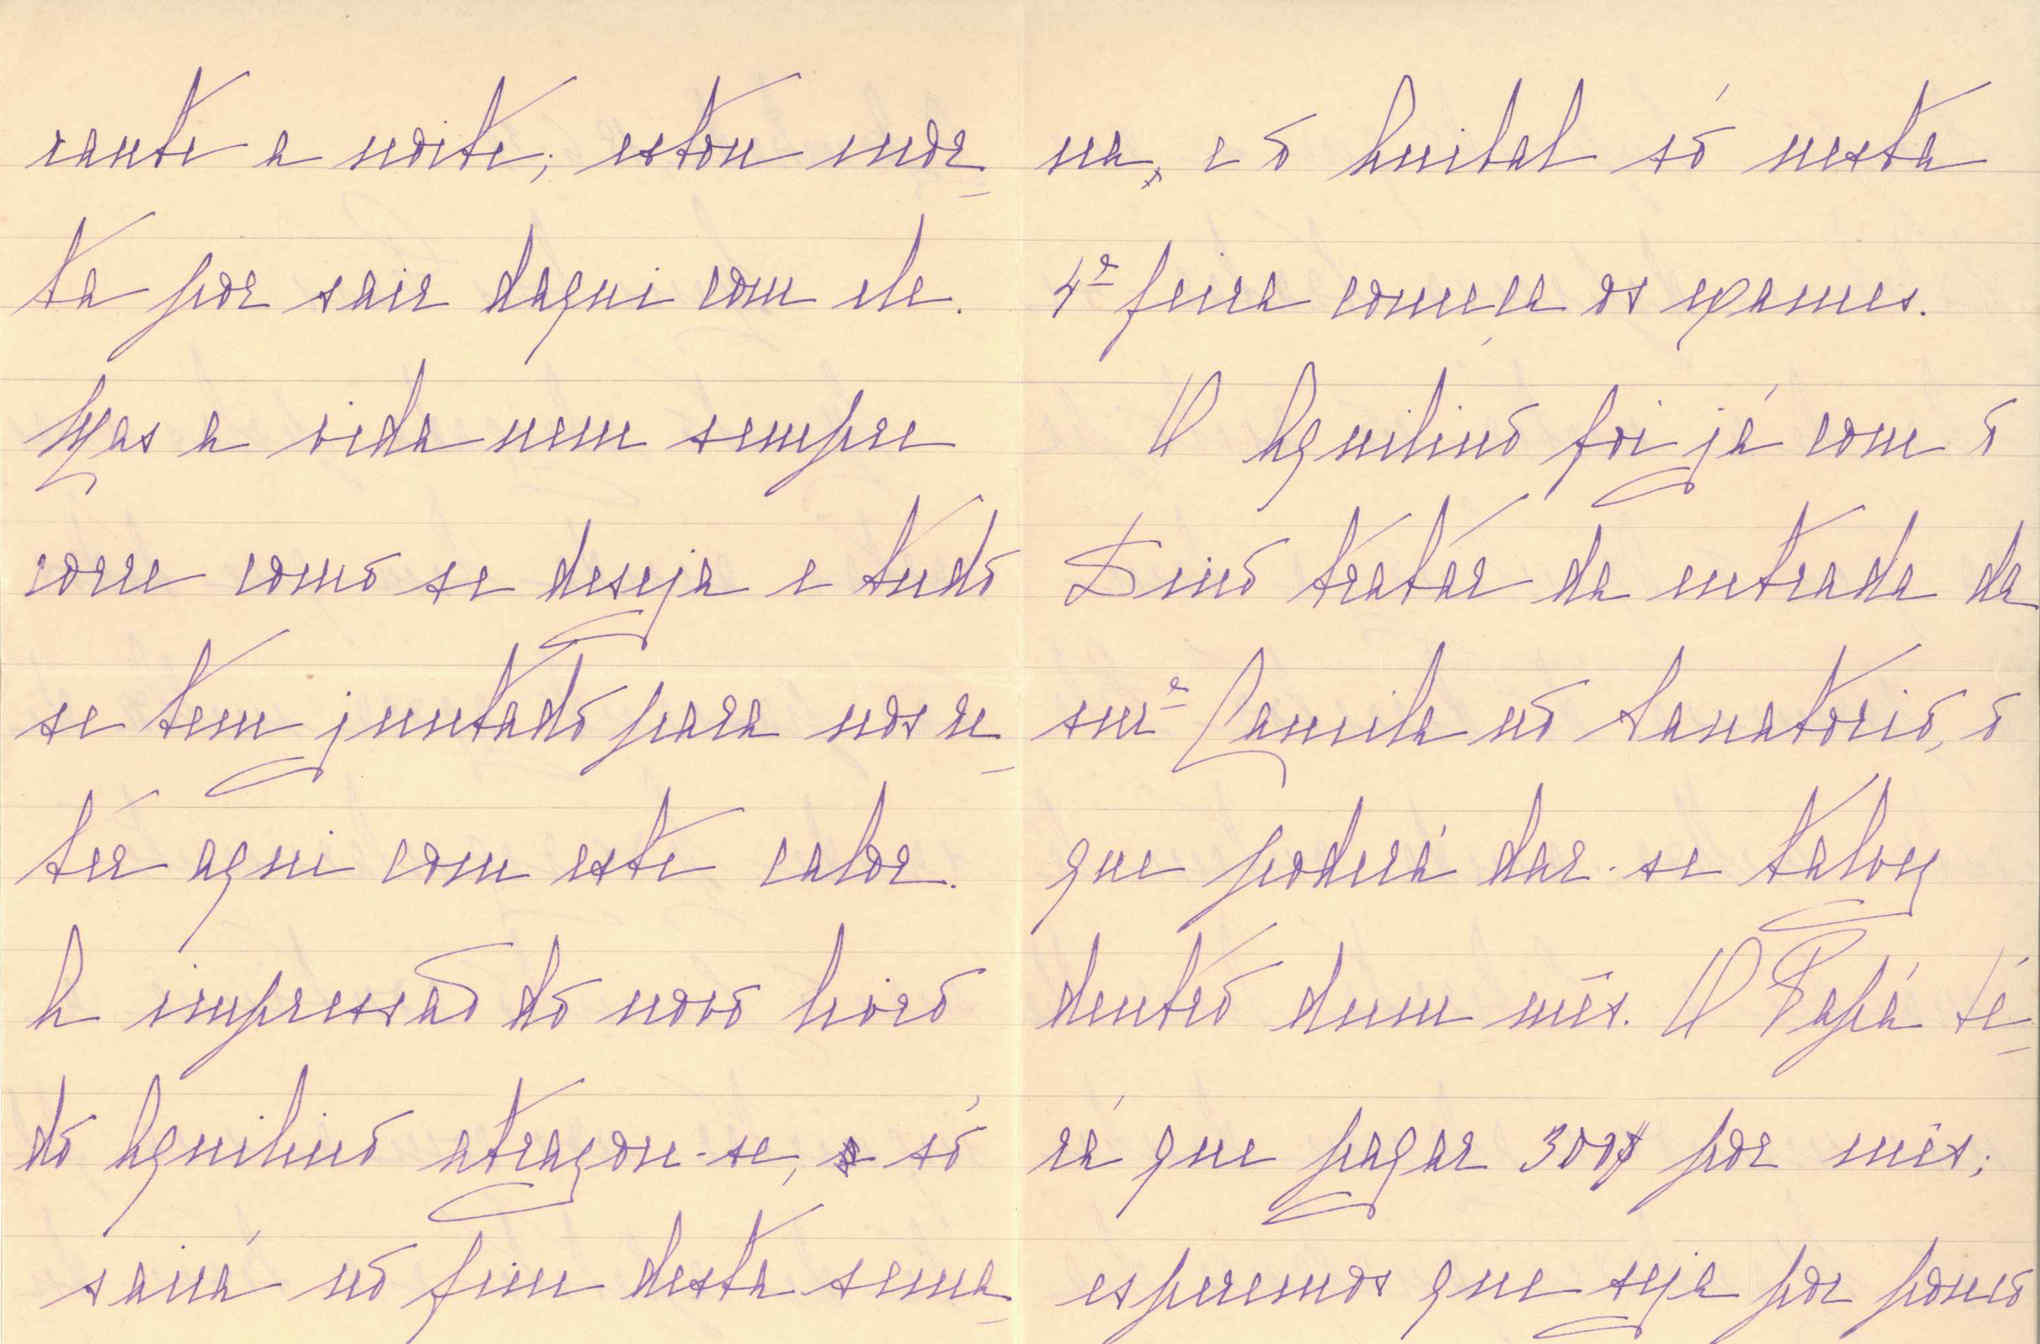 rante a noite; estou mor-
ta por sair daqui com ele.
Mas a vida nem sempre
corre como se deseja e tudo
se tem juntado para nos re-
ter aqui com este calor.
A impressão do novo livro
do Aquilino atrazou-se, só
sairá no fim desta sema-
na, e o Anibal só nesta
4ª feira começa os exames.
O Aquilino foi já com o
Dino tratar da entrada da
snrª Camila no Sanatorio, o
que poderá dar-se talvez
dentro dum mês. O Papá te-
rá que pagar 300$ por mês;
esperemos que seja por pouco